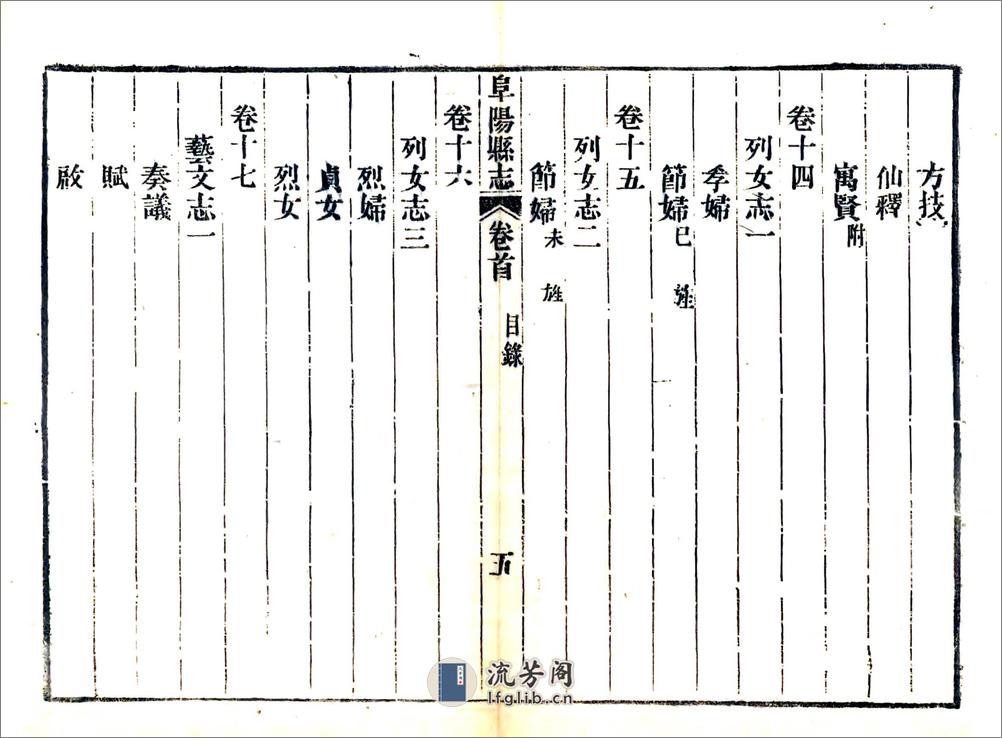 方技
仙釋
寓賢附
卷十四
列女志一
孝婦
節婦已旌
卷十五
列女志二
節婦未旌
阜陽縣志 卷首 目錄 五
卷十六
列女志三
烈婦
貞女
烈女
卷十七
藝文志一
奏議
賦
啟
流芳阁
lfglib.cn